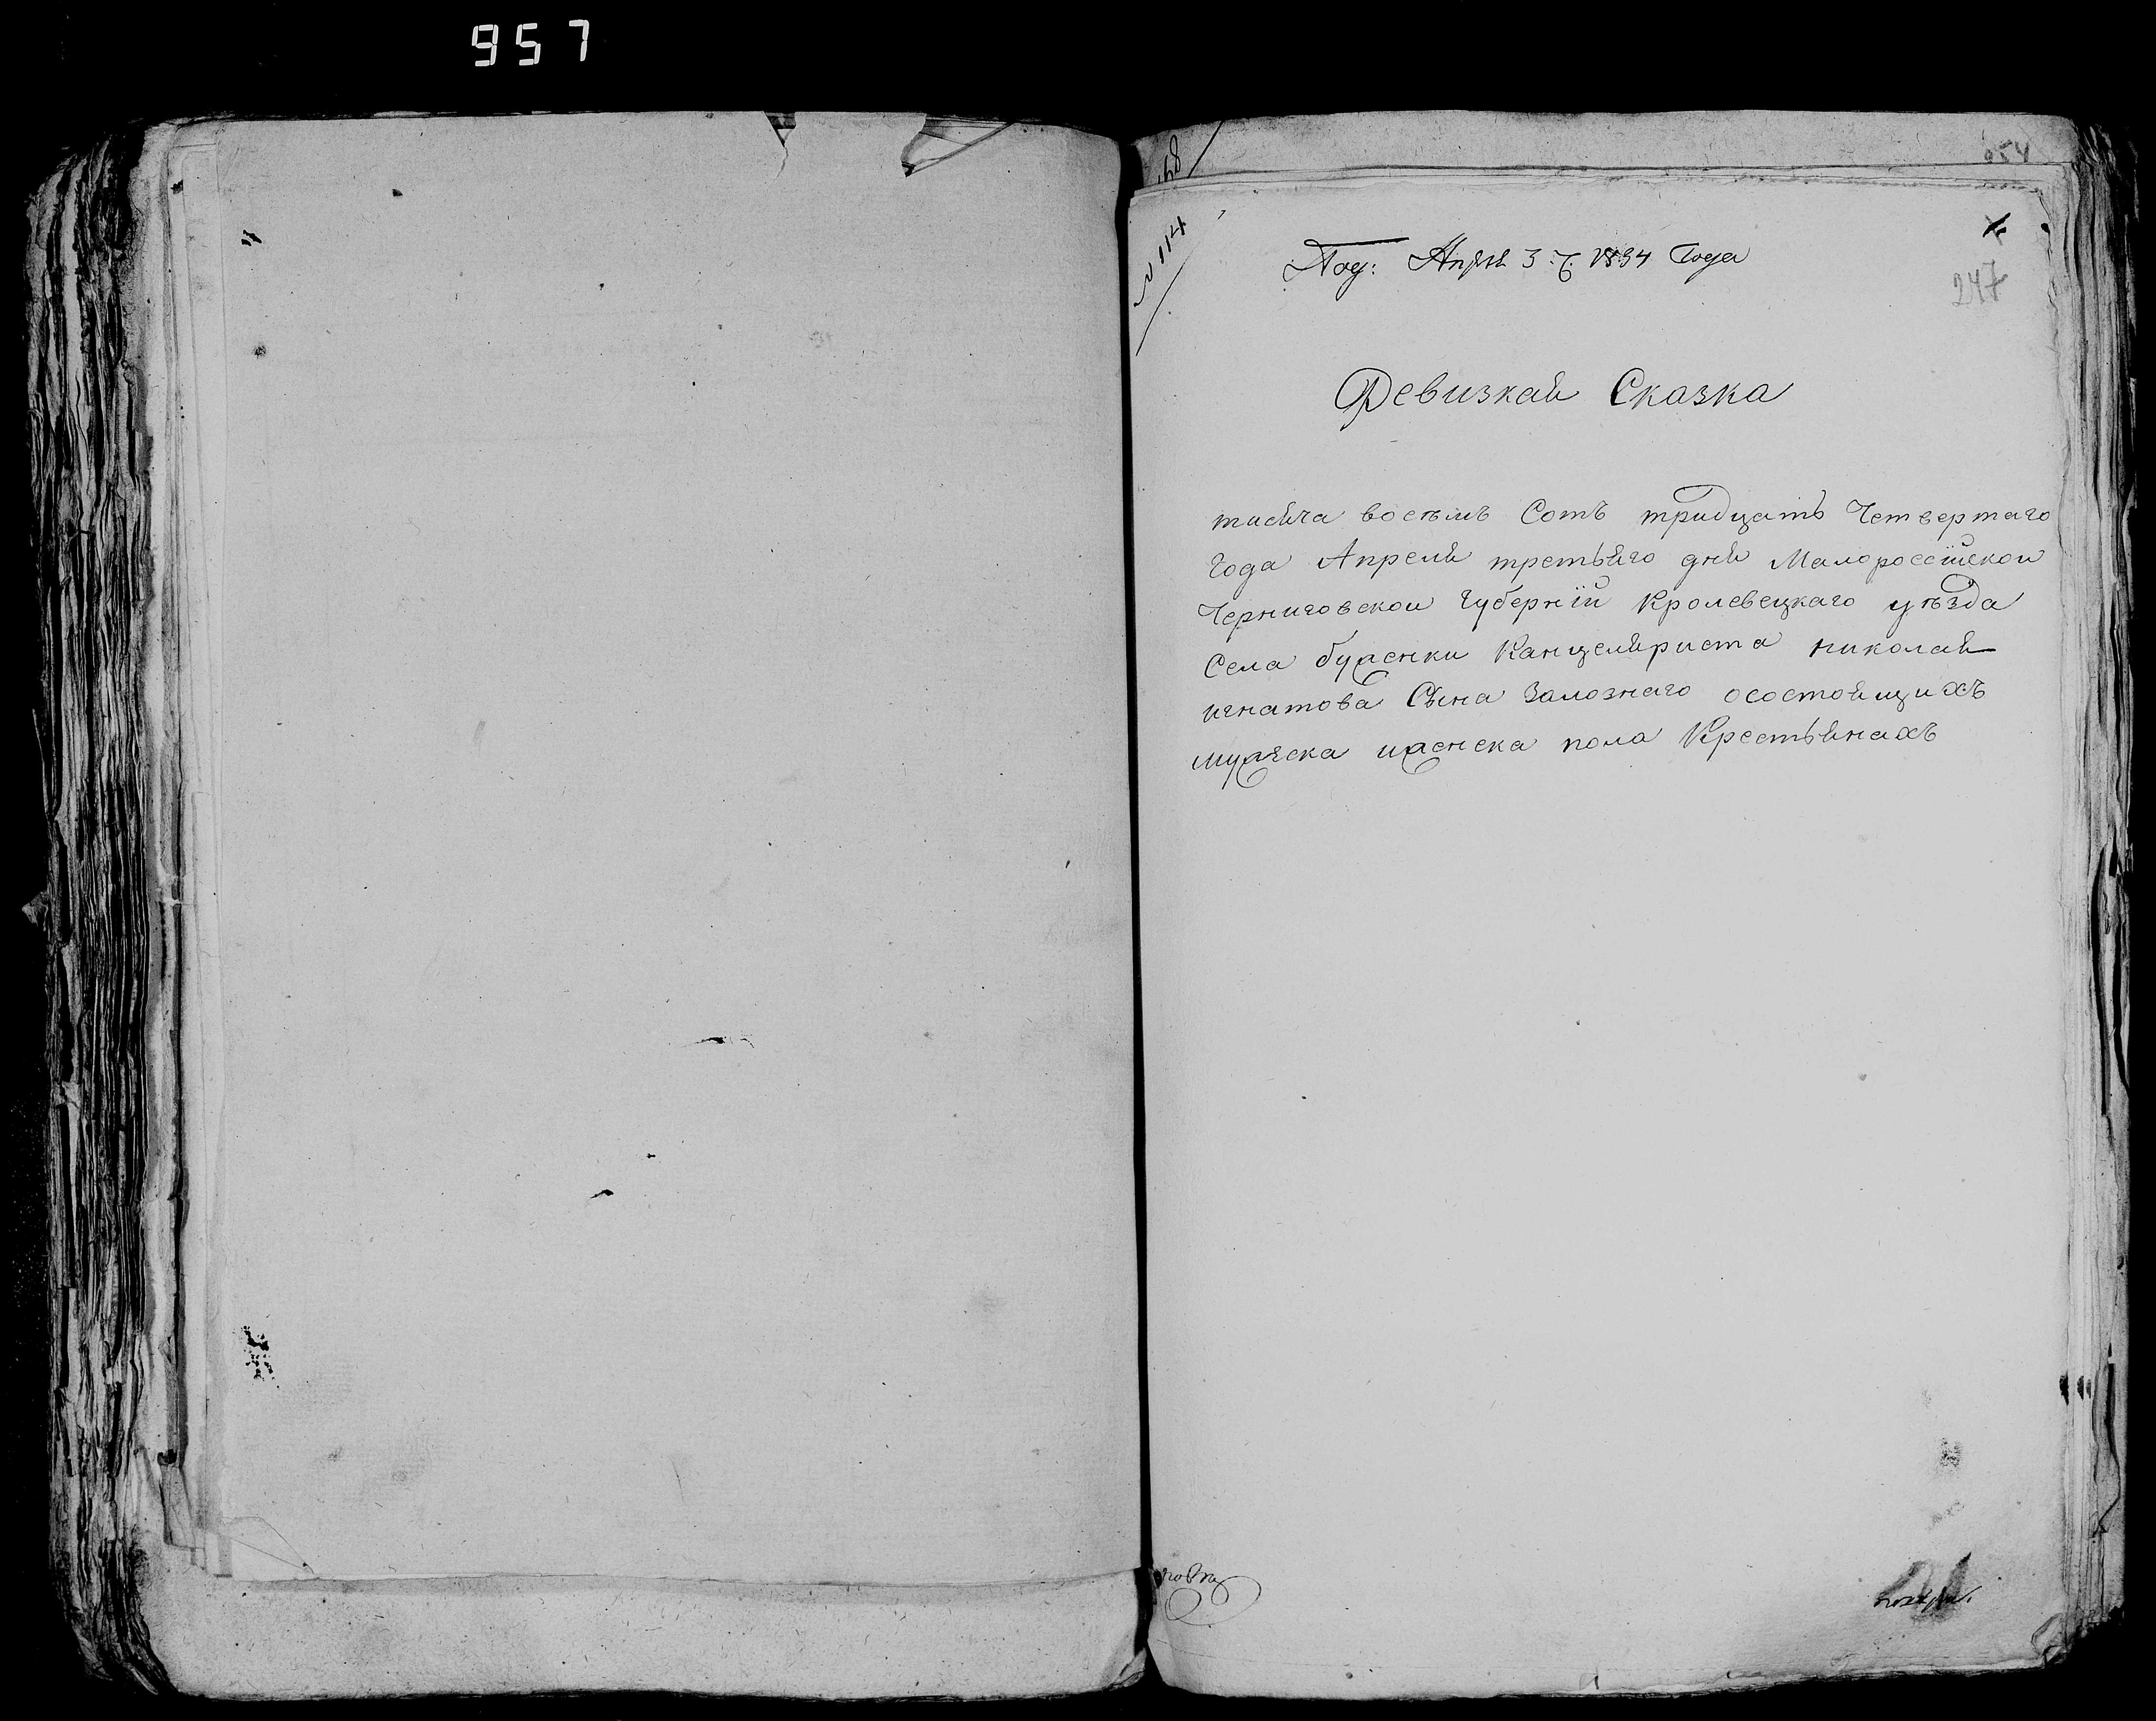 957
№ 114
Под: Апреля 3.г. 1834 Года
247
Ревизкая Сказка
тисяча восемь Сотъ тридцать Четвертаго
Года Апреля третьяго дня Малороссїйскои
Черниговскои Губернїи Кролевецкаго уѣзда
Села буженки Канцеляриста николая
игнатова Сына Залознаго осостоящихъ
мужеска иженска пола Крестьянахъ